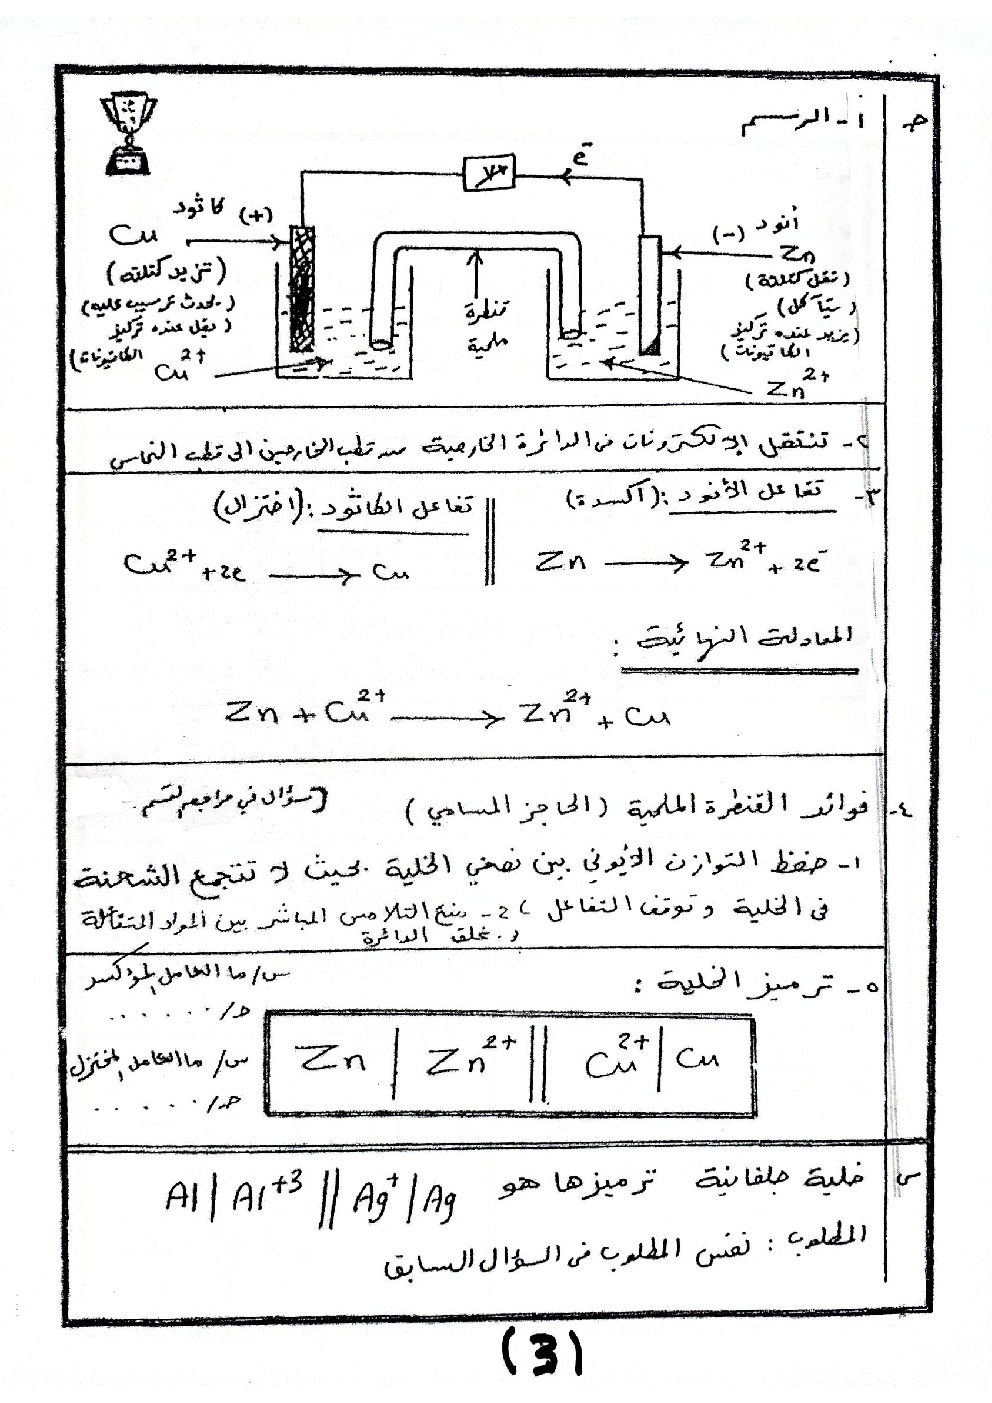 جـ
أ- الرسم
e⁻
V
كاثود (+)
Cu
(تزيد كتلته)
(يحدث ترسيب عليه)
(يقل عنده تركيز
الكاتيونات)
Cu²⁺
قنطرة
ملحية
أنود (-)
Zn
(تقل كتلته)
(يتآكل)
(يزيد عنده تركيز
الكاتيونات)
Zn²⁺
٢- تنتقل الإلكترونات في الدائرة الخارجية من قطب الخارصين الى قطب النحاس
٣- تفاعل الأنود: (أكسدة)
Zn ⟶ Zn²⁺ + 2e⁻
تفاعل الكاثود: (اختزال)
Cu²⁺ + 2e ⟶ Cu
المعادلة النهائية:
Zn + Cu²⁺ ⟶ Zn²⁺ + Cu
٤- فوائد القنطرة الملحية (الحاجز المسامي) (سؤال في مراجع
١- حفظ التوازن الأيوني بين نصفي الخلية بحيث لا تتجمع الشحنة
في الخلية وتوقف التفاعل 2- منع التلامس المباشر بين المواد المتفاعلة
و. غلق الدائرة
٥- ترميز الخلية:
Zn | Zn²⁺ || Cu²⁺ | Cu
س/ ما العامل المؤكسد
جـ/ ......
س/ ما العامل المختزل
جـ/ ......
س
خلية جلفانية ترميزها هو Al | Al⁺³ || Ag⁺ | Ag
المطلوب: نفس المطلوب في السؤال السابق
(3)